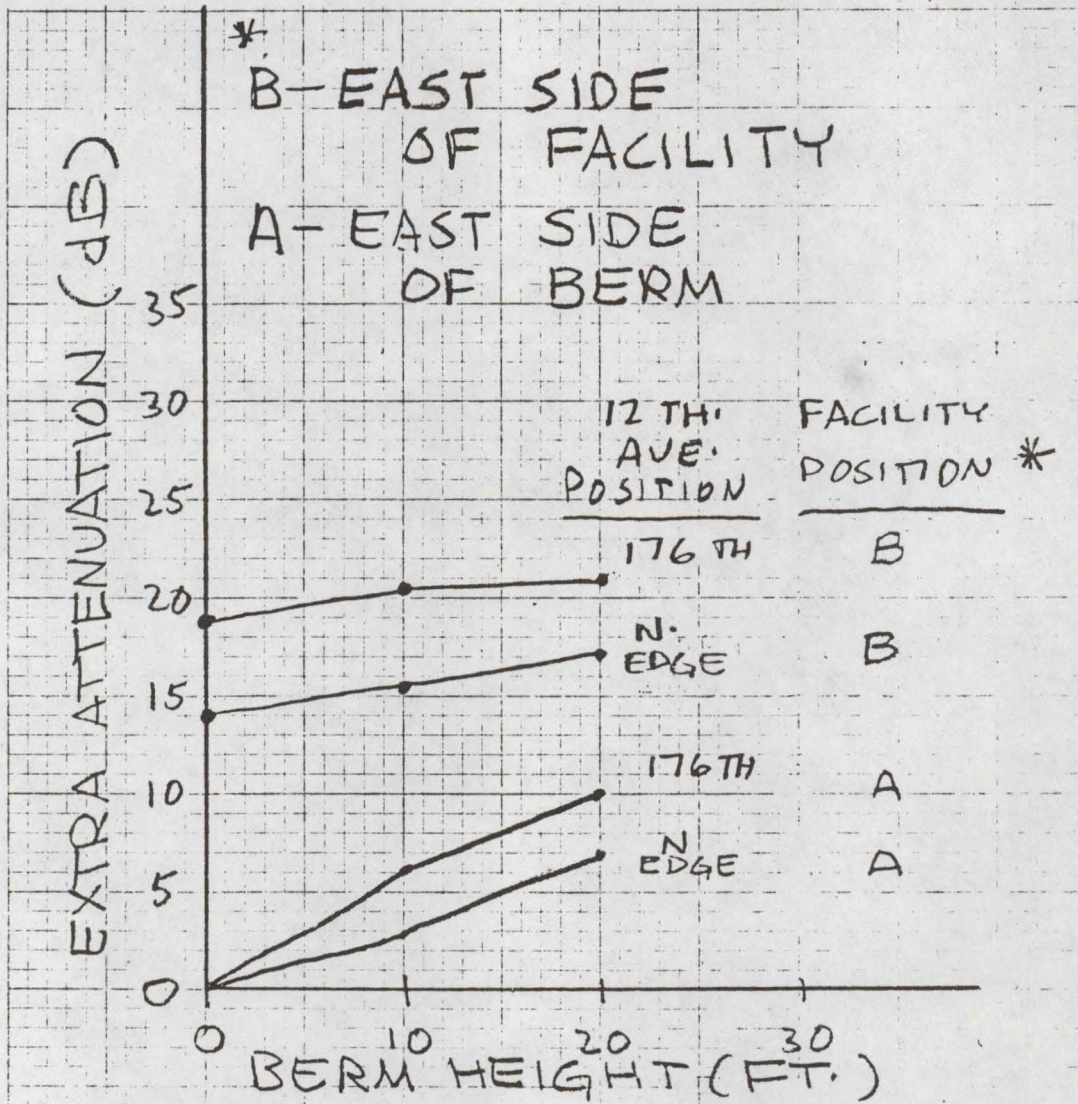 *
B-EAST SIDE
OF FACILITY
A- EAST SIDE
OF BERM
EXTRA ATTENUATION (dB)
35
30
25
20
15
10
5
0
12 TH. FACILITY
AVE. POSITION *
POSITION
176 TH B
N. 
EDGE B
176 TH A
N
EDGE A
0 10 20 30
BERM HEIGHT (FT.)